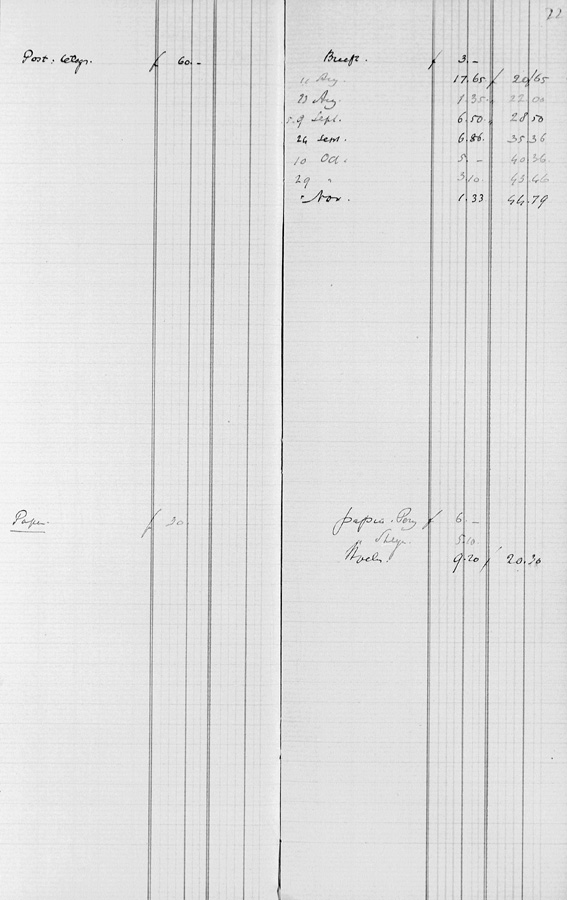 22
Post: telegr. f 60.-
f 3.-
11 Aug. 17.65 f 20/65
23 Aug. 1.35 22.00
5.9 Sept. 6.50 28 50
24 Sept. 6.86 35.36
10 Oct. 5.- 40.36
29 " 3.10 43.46
Nov. 1.33 44.79
Papier f 30
papier f 6.-
5.10
9.20 f 20.30